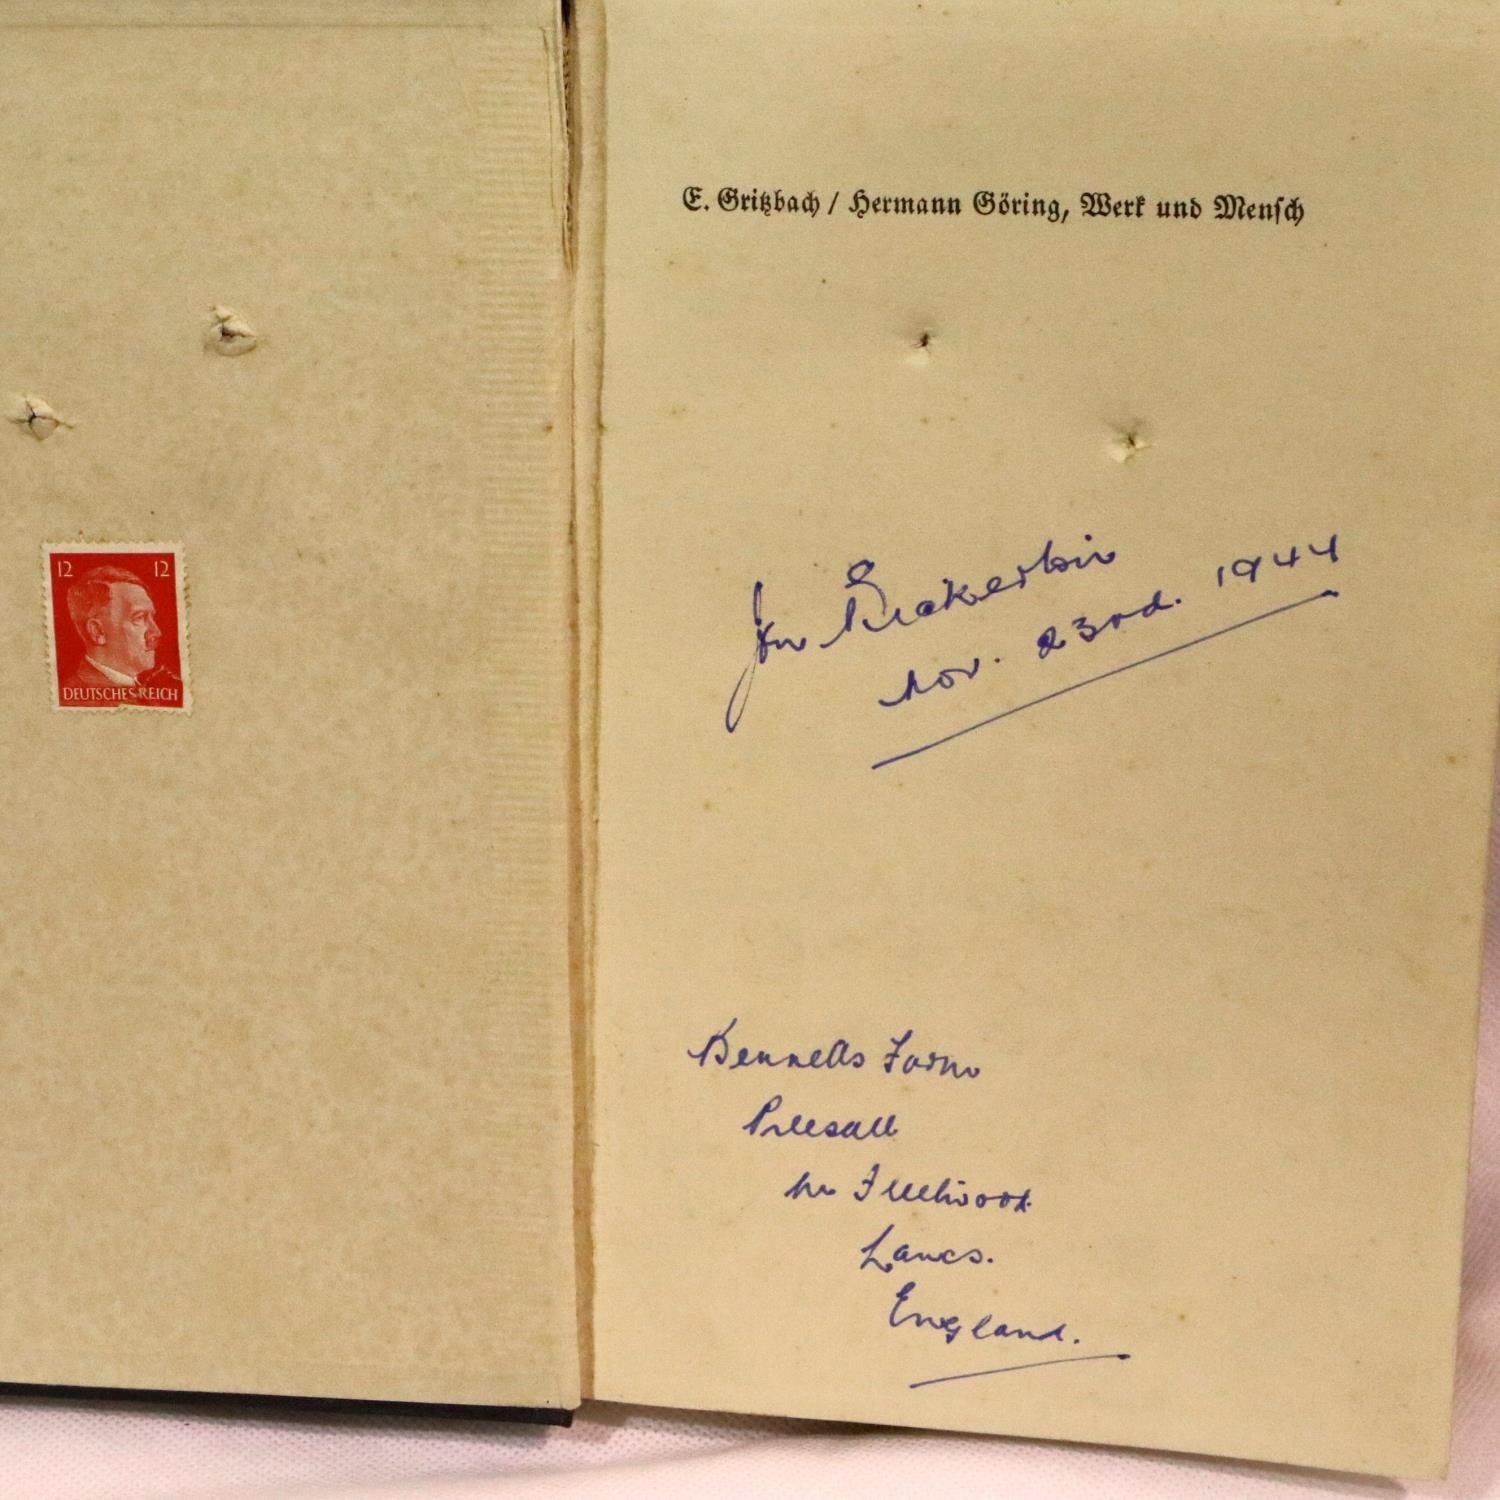 12 12
DEUTSCHES REICH
E. Gritzbach / Hermann Göring, Werk und Mensch
Nov. 23rd. 1944
Bennetts Farm
Preesall
Nr Fleetwood
Lancs.
England.